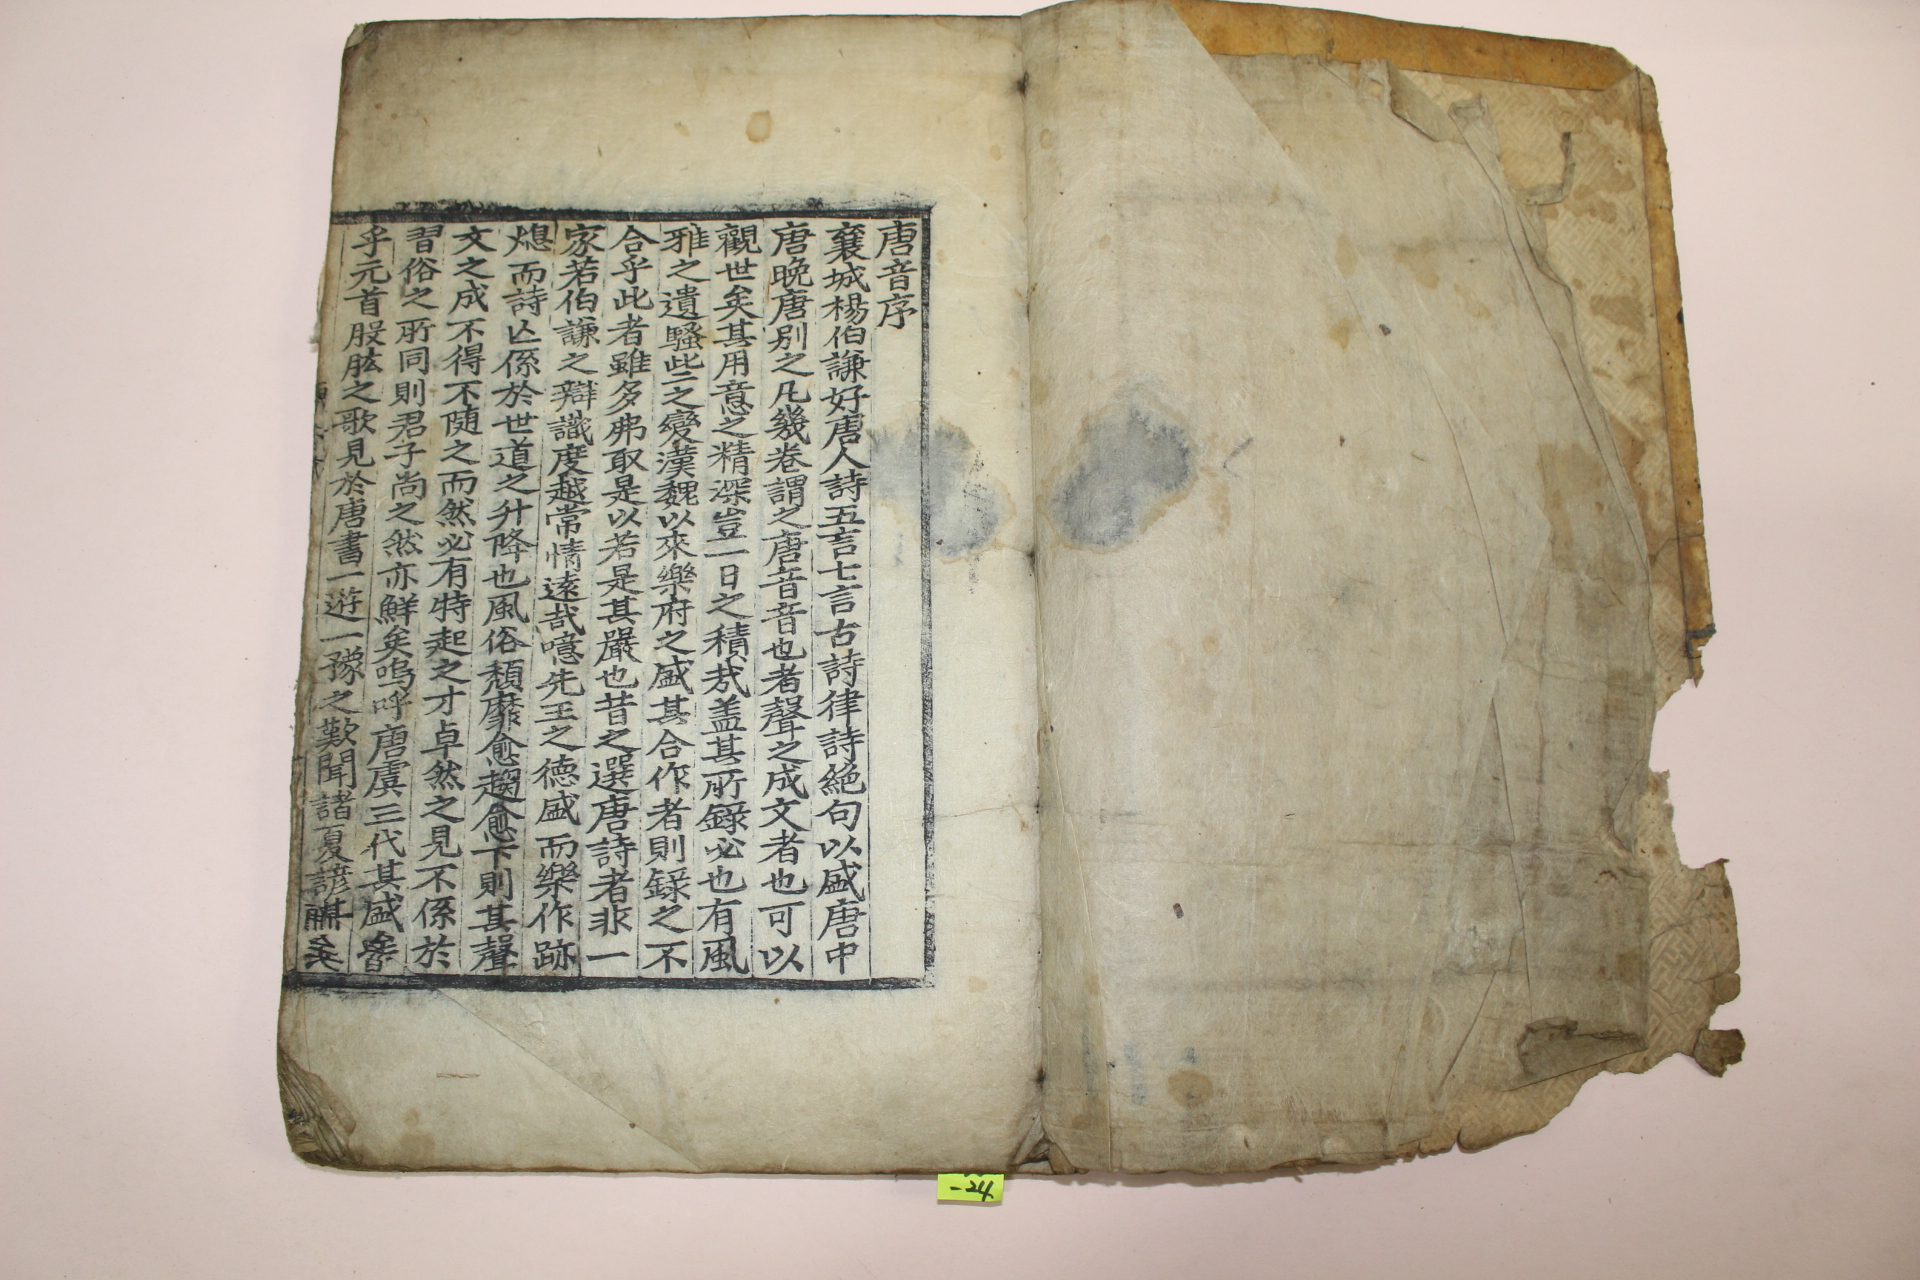 唐音序
襄城楊伯謙好唐人詩五言七言古詩律詩絶句以盛唐中
唐晚唐别之凡幾卷謂之唐音音也者聲之成文者也可以
觀世矣其用意之精深豈一日之積㦲盖其所録必也有風
雅之遺騷些之變漢魏以來樂府之盛其合作者則録之不
合乎此者雖多弗取是以若是其嚴也昔之選唐詩者非一
家若伯謙之辯識度越常情遠哉噫先王之德盛而樂作跡
熄而詩亾係於世道之升降也風俗頹靡愈趨愈下則其聲
文之成不得不随之而然必有特起之才卓然之見不係於
習俗之所同則君子尚之然亦鮮矣嗚呼唐虞三代其盛矣
乎元首股肱之歌見於虞書一遊一豫之歎聞諸夏諺
-24